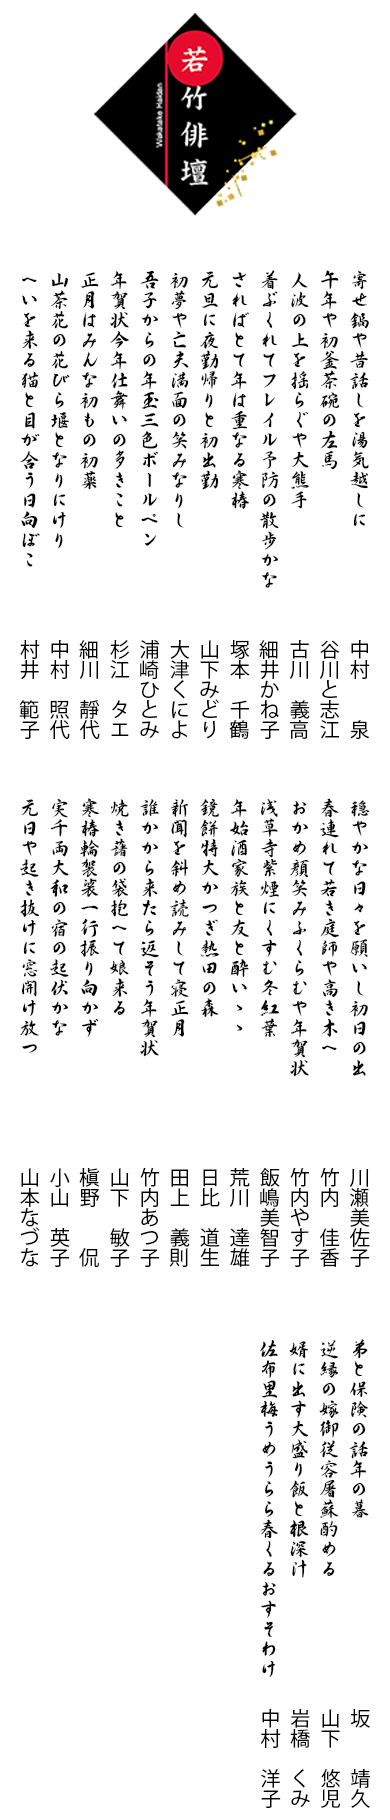 若竹俳壇
Wakatake Haidan
寄せ鍋や昔話しを湯気越しに
中村 泉
午年や初釜茶碗の左馬
谷川と志江
人波の上を揺らぐや大熊手
古川 義高
着ぶくれてフレイル予防の散歩かな
細井かね子
さればとて年は重なる寒椿
塚本 千鶴
元旦に夜勤帰りと初出勤
山下みどり
初夢や亡夫満面の笑みなりし
大津くによ
吾子からの年玉三色ボールペン
浦崎ひとみ
年賀状今年仕舞いの多きこと
杉江 タエ
正月はみんな初もの初薬
細川 靜代
山茶花の花びら堰となりにけり
中村 照代
へいを来る猫と目が合う日向ぼこ
村井 範子
穏やかな日々を願いし初日の出
川瀬美佐子
春連れて若き庭師や高き木へ
竹内 佳香
おかめ顔笑みふくらむや年賀状
竹内やす子
浅草寺紫煙にくすむ冬紅葉
飯嶋美智子
年始酒家族と友と酔いゝゝ
荒川 達雄
鏡餅特大かつぎ熱田の森
日比 道生
新聞を斜め読みして寝正月
田上 義則
誰かから来たら返そう年賀状
竹内あつ子
焼き藷の袋抱へて娘来る
山下 敏子
寒椿輪袈裟一行振り向かず
槇野 侃
実千両大和の宿の起伏かな
小山 英子
元日や起き抜けに窓開け放つ
山本なづな
弟と保険の話年の暮
坂 靖久
逆縁の嫁御従容屠蘇酌める
山下 悠児
婿に出す大盛り飯と根深汁
岩橋 くみ
佐布里梅うめうらら春くるおすそわけ
中村 洋子